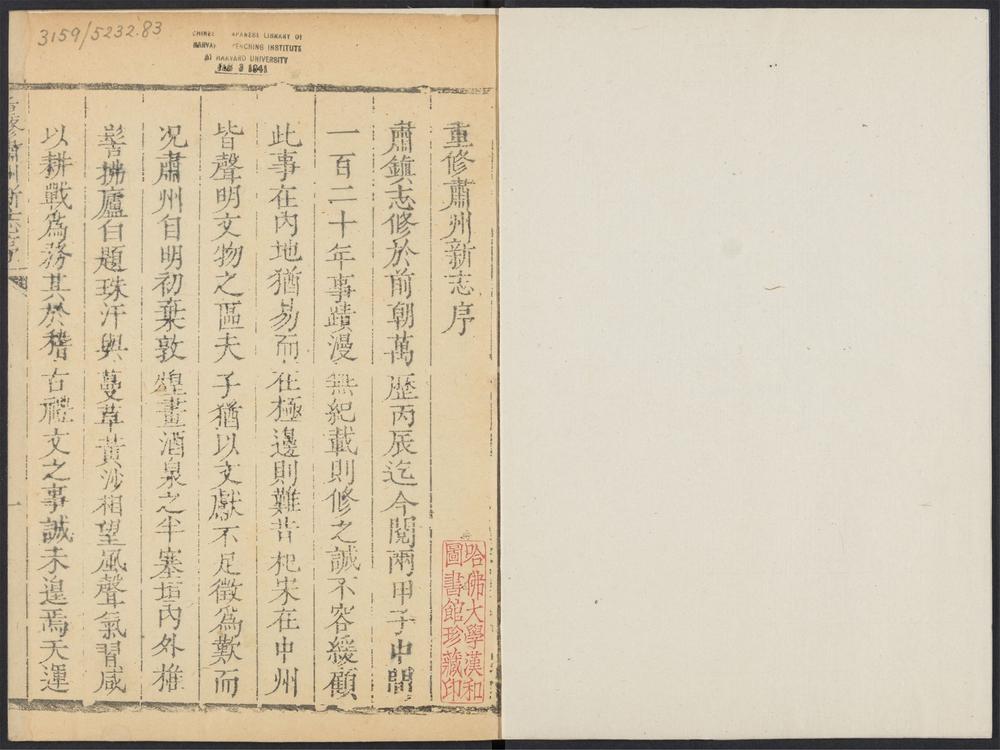 3159/5232.83
CHINESE JAPANESE LIBRARY OF
HARVARD YENCHING INSTITUTE
AT HARVARD UNIVERSITY
JAN 3 1941
重修肅州新志序
肅鎮志修於前朝萬歷丙辰迄今閱兩甲子中間
一百二十年事蹟漫無紀載則修之誠不容緩顧
此事在內地猶易而在極邊則難昔杞宋在中州
皆聲明文物之區夫子猶以文獻不足徵爲歎而
况肅州自明初棄敦煌畫酒泉之半塞垣內外椎
髻拂廬白題珠汗與蔓草黃沙相望風聲氣習咸
以耕戰爲務其於稽古禮文之事誠未遑焉天運
重修肅州新志序
一
哈佛大學漢和
圖書館珍藏印